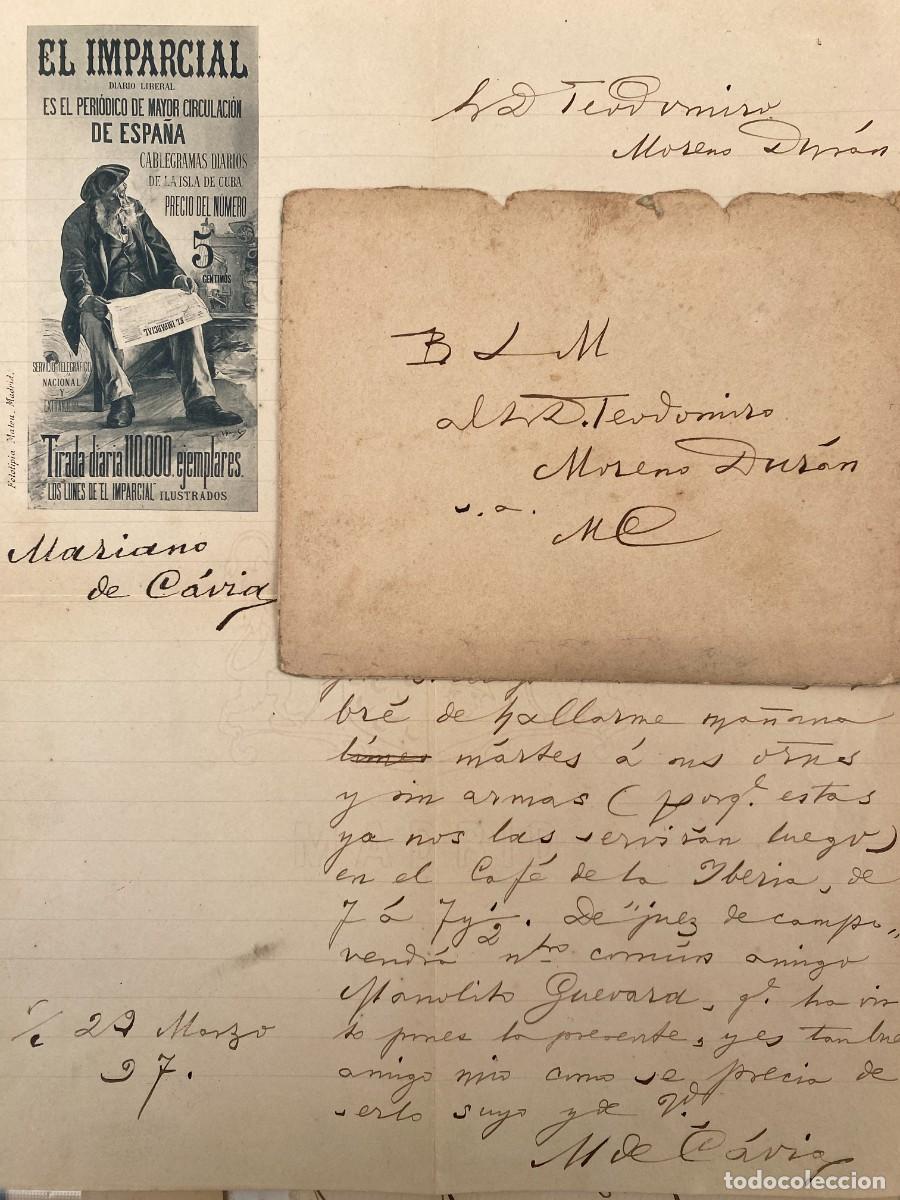 EL IMPARCIAL
DIARIO LIBERAL
ES EL PERIÓDICO DE MAYOR CIRCULACIÓN
DE ESPAÑA
CABLEGRAMAS DIARIOS
DE LA ISLA DE CUBA
PRECIO DEL NÚMERO
5
CENTIMOS
EL IMPARCIAL
SERVICIO TELEGRÁFICO
NACIONAL
Y
Tirada diaria 110.000 ejemplares.
"LOS LUNES DE "EL IMPARCIAL" ILUSTRADOS
Fototipia Mateu. Madrid.
Mariano
de Cávia
D Teodomiro
Moreno Durán
B L M
al Sr D. Teodomiro
Moreno Durán
s. a.
MC
bré de hallarme mañana
lúnes mártes á sus órnes
y sin armas (porq.e estas
ya nos las servirán luego)
en el Café de la Iberia, de
7 á 7 y ½. De "juez de campo"
vendrá ntro común amigo
Manolito Guevara, q.e ha vis
to pones la presente, y es tan bue
amigo mio como se precia de
serlo suyo y de Vd.
M de Cávia
s/c 29 Marzo
97.
todocoleccion